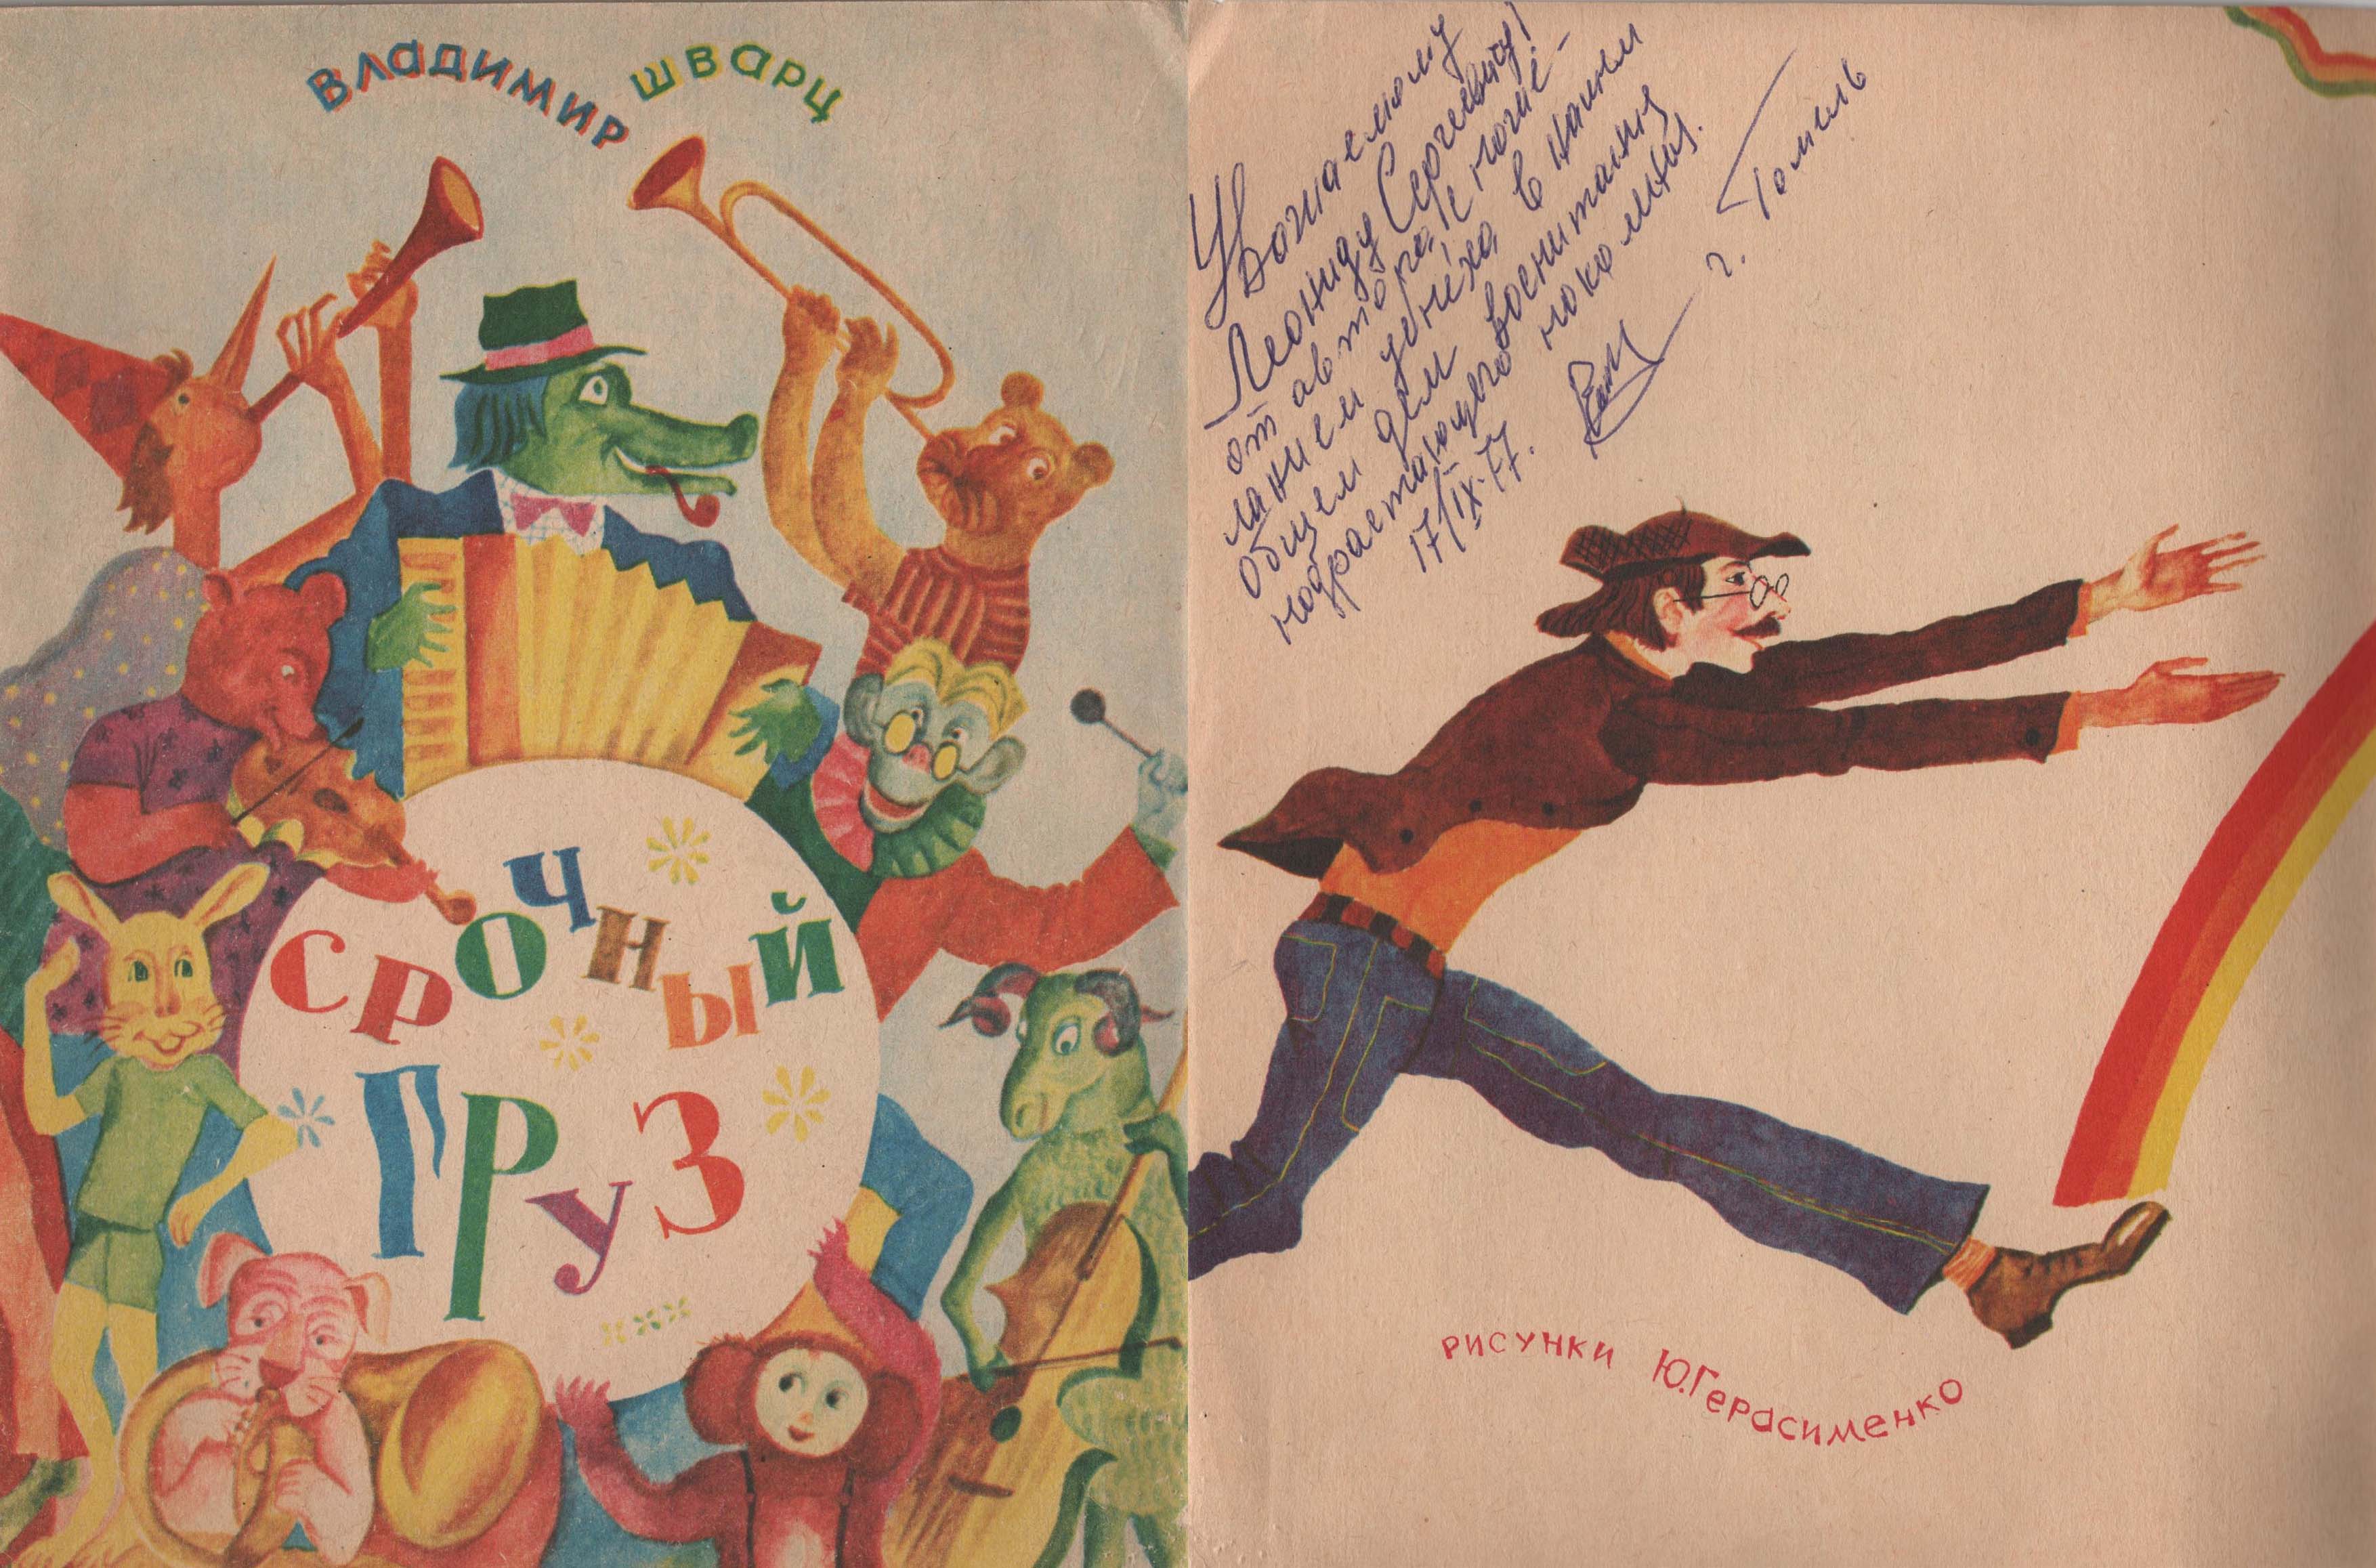 Владимир Шварц
Срочный
груз
Уважаемому
Леониду Сергеевичу!
от автора, с поже-
ланием успеха в нашем
общем деле воспитания
подрастающего поколения.
17/IX-77.
г. Гомель
рисунки Ю.Герасименко